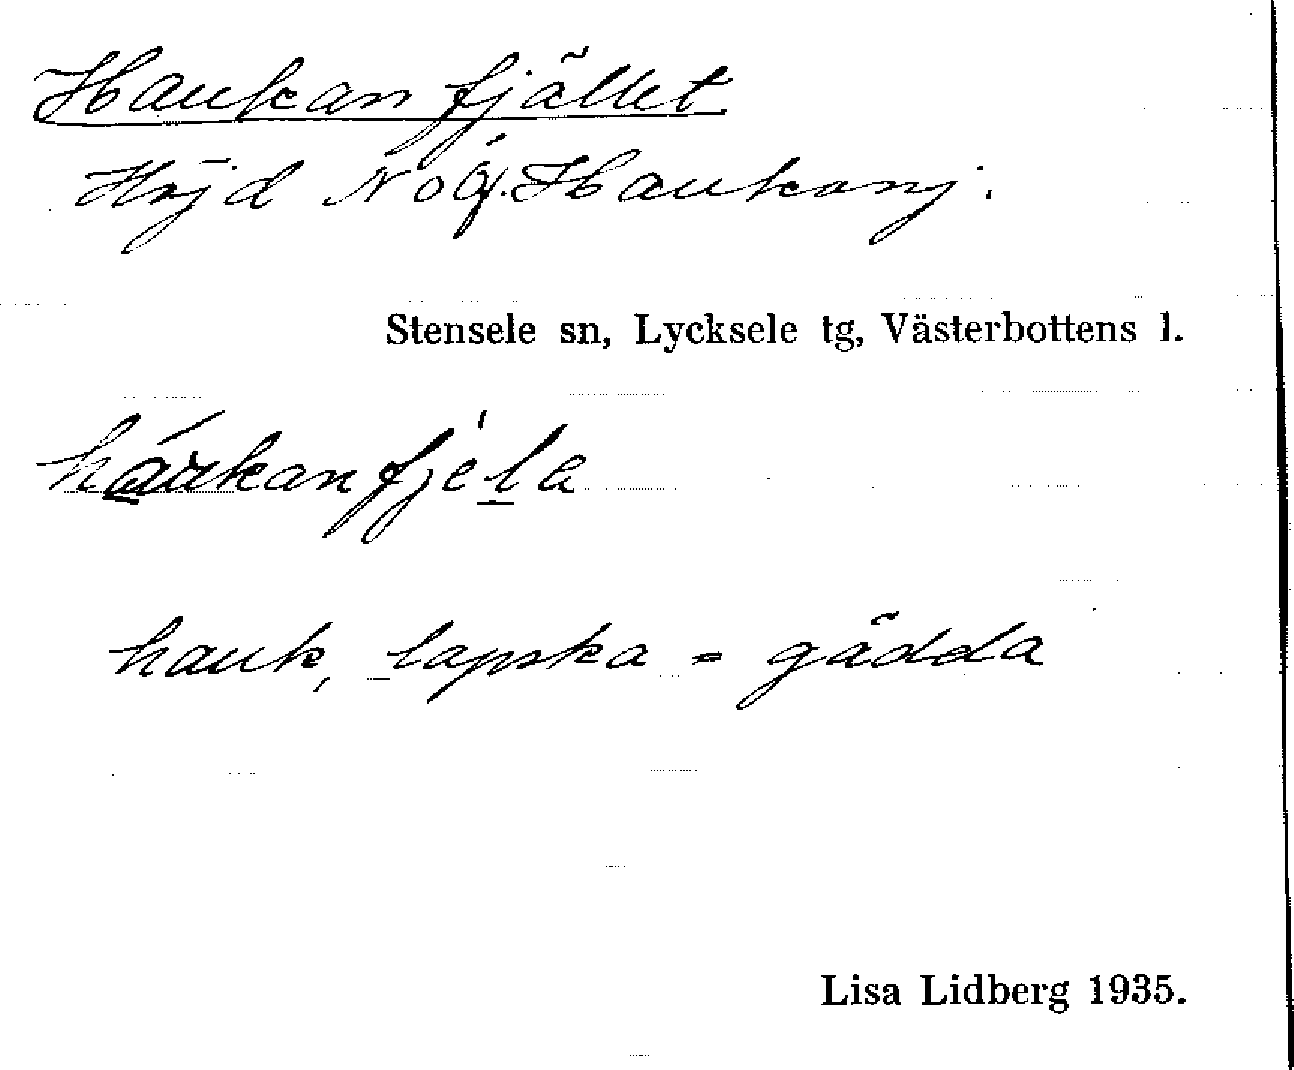 Haukanfjället
Höjd N o Ö. Haukanj.
Stensele sn, Lycksele tg, Västerbottens l.
háukanfjèla
hauk, lapska = gädda
Lisa Lidberg 1935.